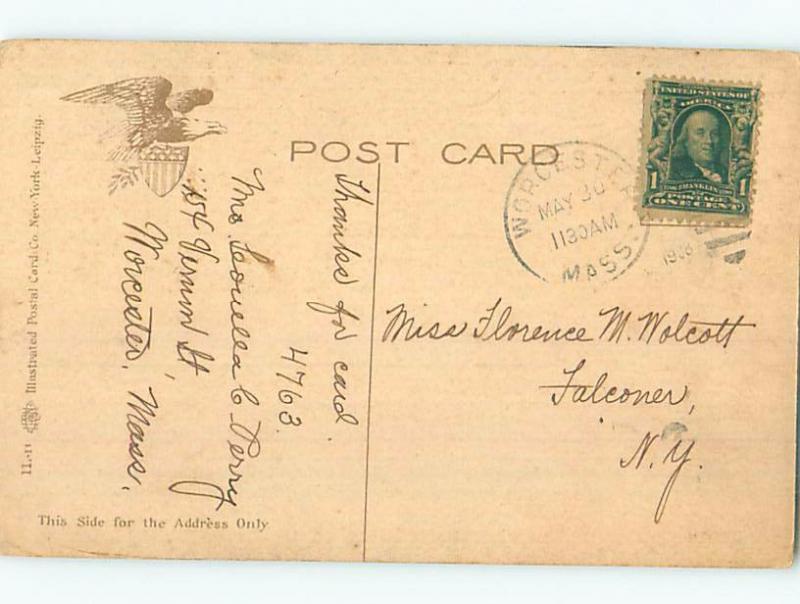 POST CARD
WORCESTER
MAY 30
1130AM
MASS.
1908
UNITED STATES OF
AMERICA
1 FRANKLIN 1
POSTAGE
ONE CENT
Thanks for card
4763
Mrs. Louella C Perry
Vernon St,
Worcester, Mass.
Miss Florence M. Wolcott
Falconer,
N.Y.
This Side for the Address Only
Illustrated Postal Card Co. New York-Leipzig.